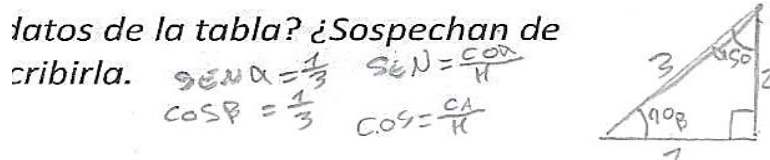 datos de la tabla? ¿Sospechan de
cribirla.
SEN α = 1/3 SEN = COA/H
COS β = 1/3 COS = CA/H
3
2
1